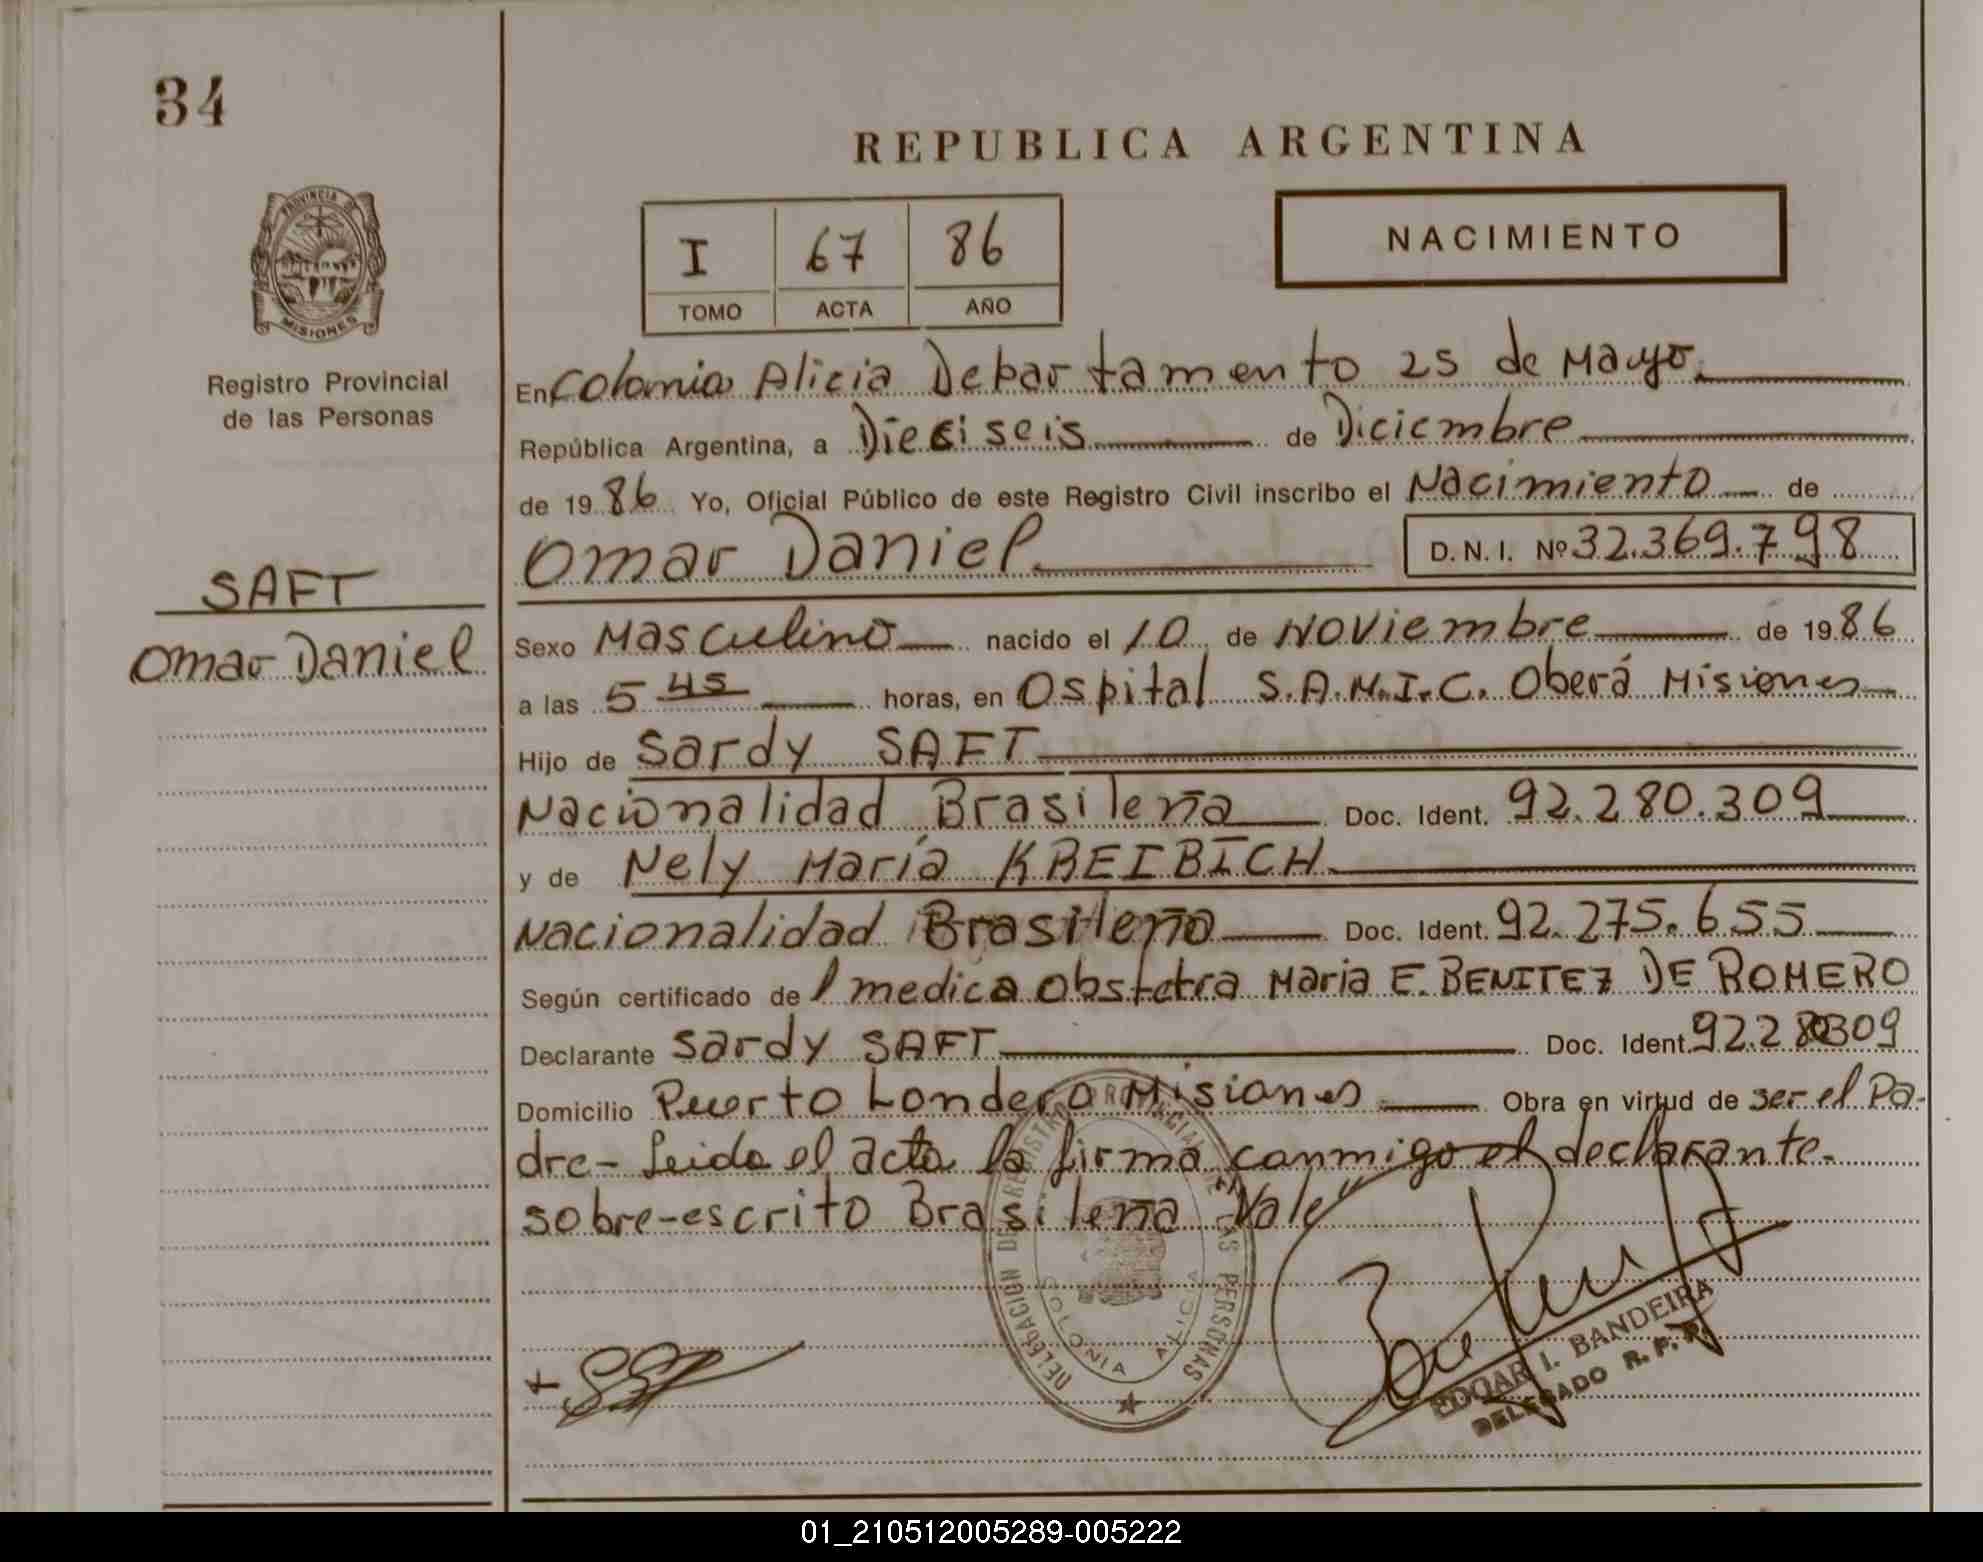 34
REPUBLICA ARGENTINA
PROVINCIA DE
MISIONES
Registro Provincial
de las Personas
I 67 86
TOMO ACTA AÑO
NACIMIENTO
En Colonia Alicia Departamento 25 de Mayo.
República Argentina, a Dieciseis de Diciembre
de 1986 Yo, Oficial Público de este Registro Civil inscribo el Nacimiento de
Omar Daniel D.N.I. Nº 32.369.798
SAFT
Omar Daniel
Sexo Masculino nacido el 10 de Noviembre de 1986
a las 5 45 horas, en Ospital S.A.M.I.C. Oberá Misiones
Hijo de Sardy SAFT
Nacionalidad Brasileña Doc. Ident. 92.280.309
y de Nely María KREIBICH
Nacionalidad Brasileña Doc. Ident. 92.275.655
Según certificado de l medica obstetra Maria E. BENITEZ DE ROMERO
Declarante Sardy SAFT Doc. Ident. 92.280309
Domicilio Puerto Londero Misiones Obra en virtud de ser el Pa-
dre - Leida el acta la firma conmigo el declarante.
sobre-escrito Brasileña Vale"
DELEGACION DE REGISTRO PROVINCIAL DE LAS PERSONAS
COLONIA ALICIA
EDGAR I. BANDEIRA
DELEGADO R. P. P.
01_210512005289-005222